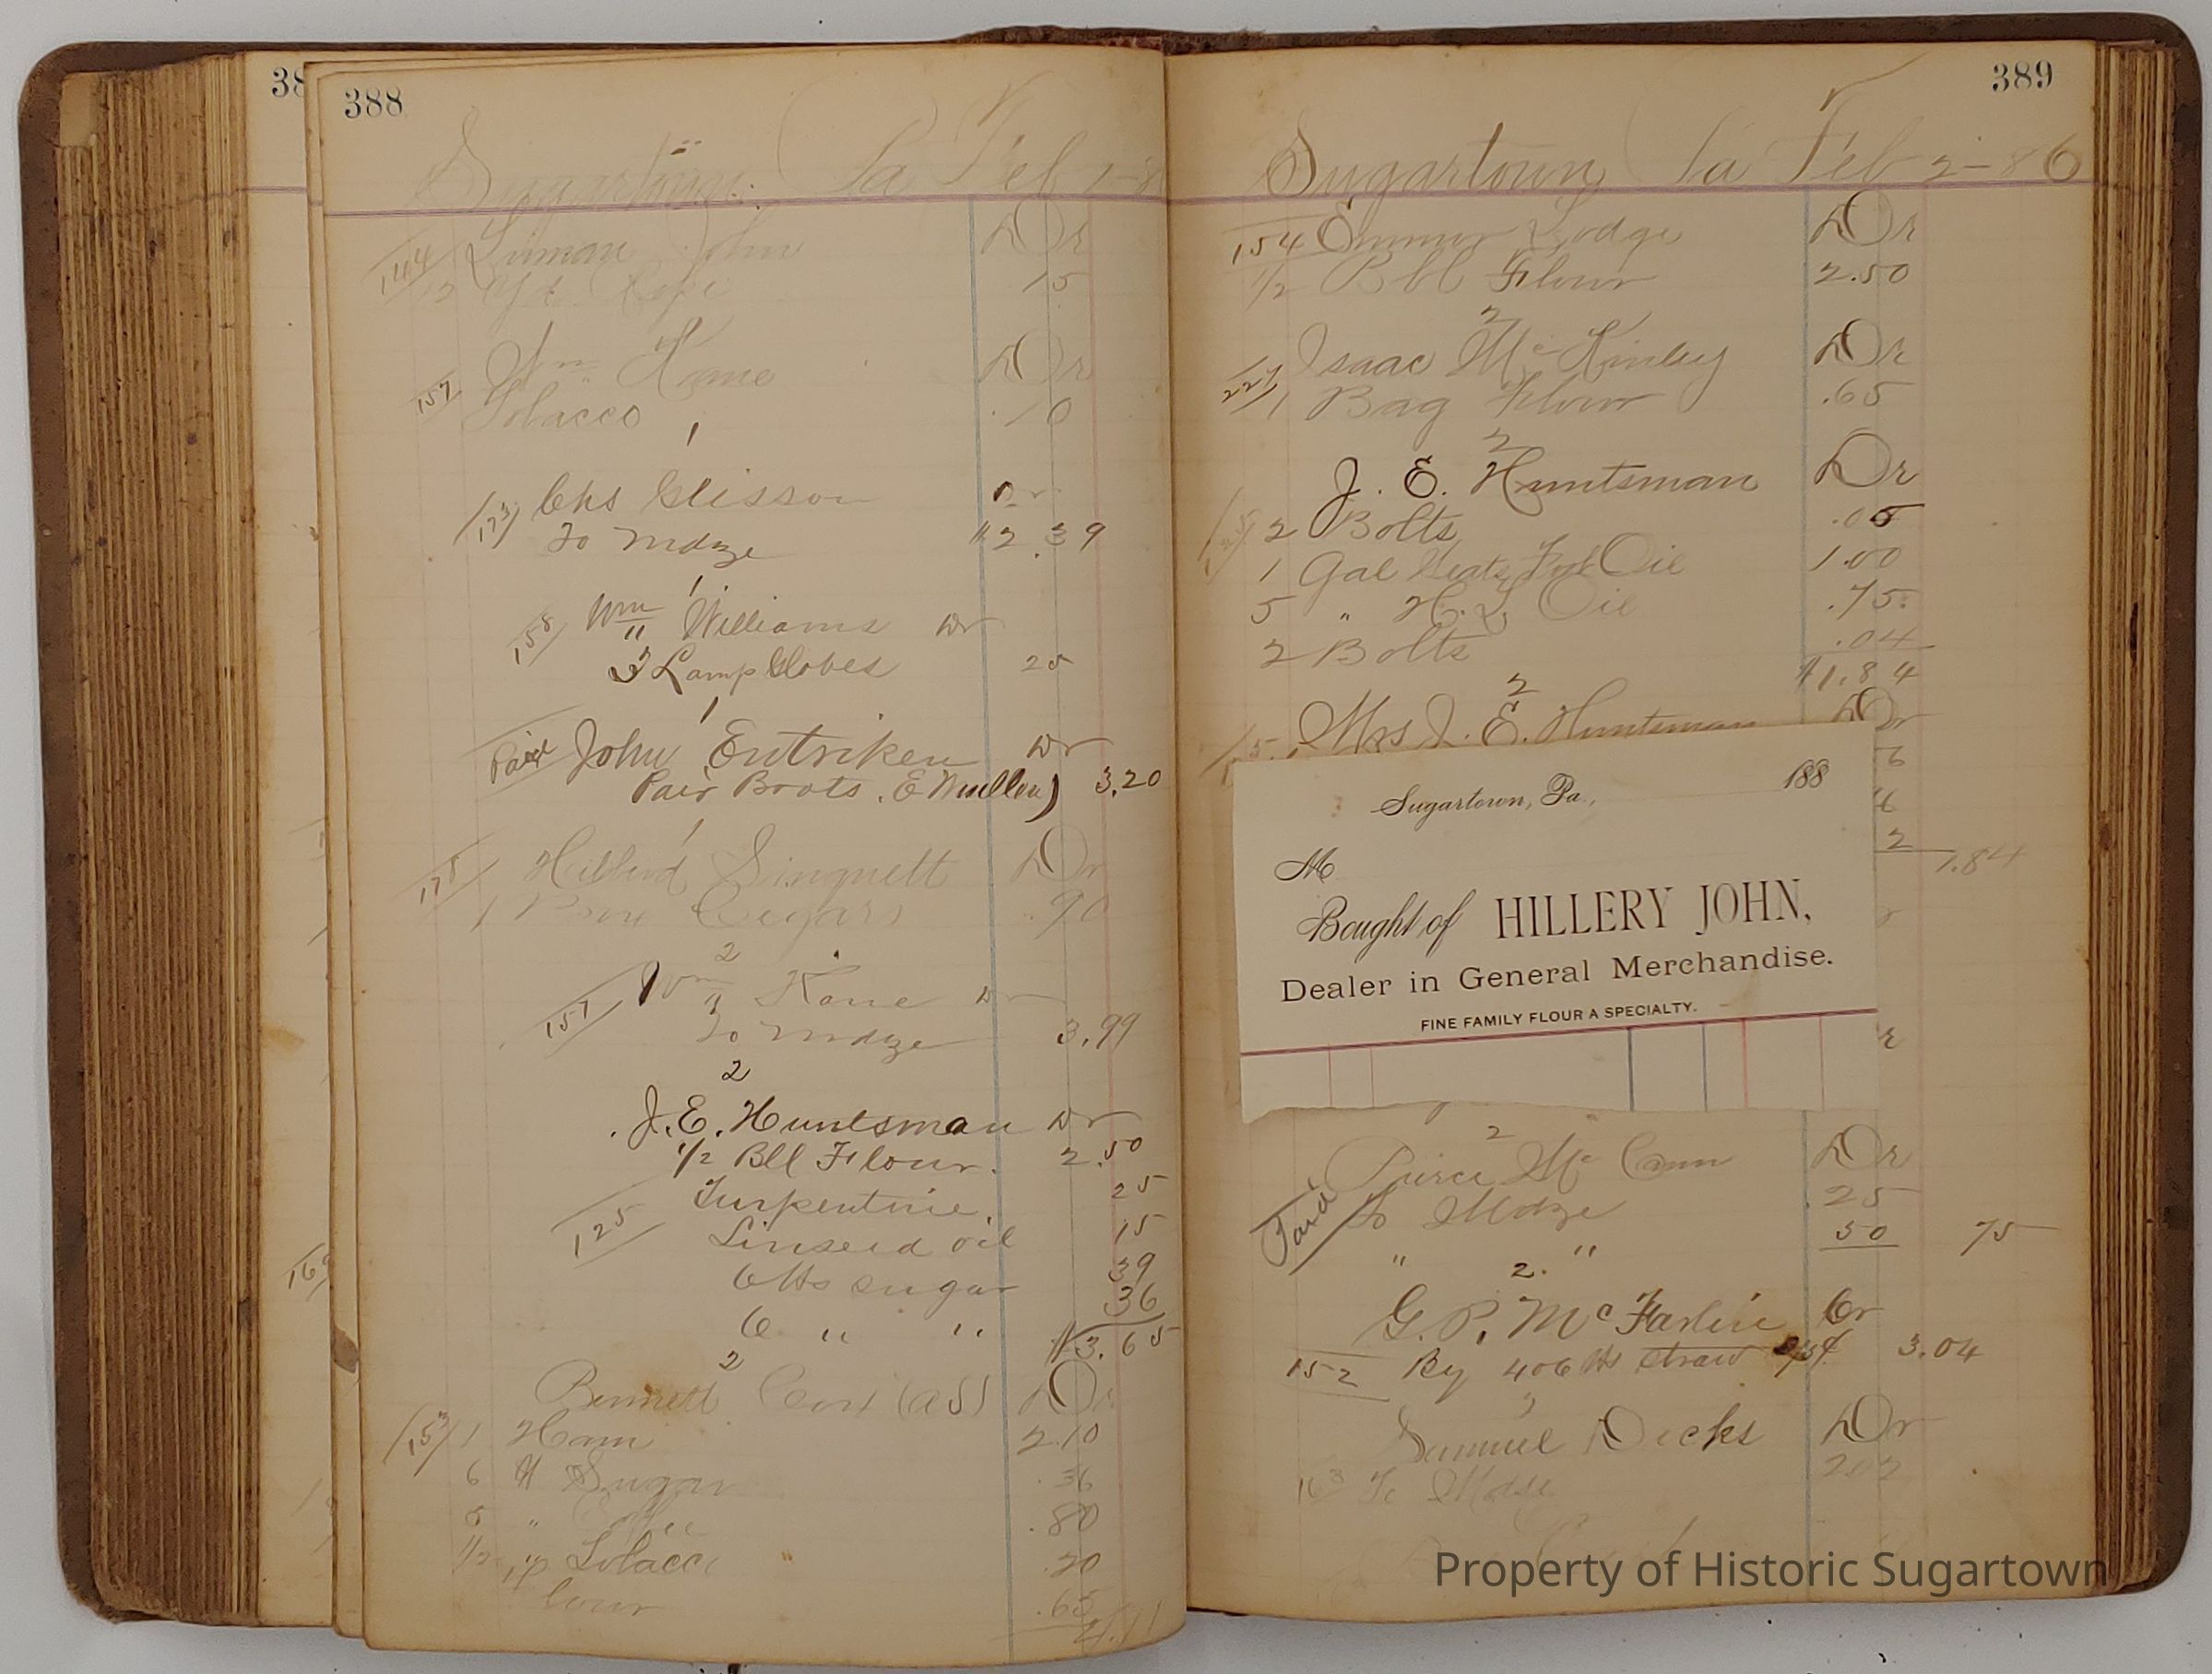 388
Sugartown Pa Feb 1-8
144 John Dr
12 yd Rope 15
1
Wm Kane Dr
157 Tobacco .10
1
Chs Glisson Dr
173 To Mdze $2.39
1
158 Wm Williams Dr
3 Lamp Globes 25
1
Paid John Entriken Dr
Pair Boots. E Mullen) 3.20
1
178 Dr
1 Box Cigars 90
2
157 Wm Kane Dr
To Mdze 3.99
2
J. E. Huntsman Dr
1/2 Bll Flour. 2.50
Turpentine. 25
125 Linseed oil 15
6 lbs sugar 39
6 " " 36
$3.65
2
Bennett (as) Dr
153 1 Ham 2.10
6 # Sugar .36
5 " .80
1/2 " Tobacco .20
.65
389
Sugartown Pa Feb 2-86
154 Emmor Lodge Dr
1/2 Bbl Flour 2.50
2
Isaac McKinley Dr
227 1 Bag Flour .65
2
J. E. Huntsman Dr
2 Bolts .05
1 Gal Oil 1.00
5 " H. L. Oil .75
2 Bolts .04
$1.84
2
Mrs J. E. Huntsman Dr
6
6
2 1.84
Sugartown, Pa., 188
M
Bought of HILLERY JOHN,
Dealer in General Merchandise.
FINE FAMILY FLOUR A SPECIALTY.
r
2
Peirce McCann Dr
Paid To Mdze .25
" " 50 75
2.
G. P. McFarline Cr
152 By 406 lbs straw 3.04
Samuel Decks Dr
163 To Mdse 202
Property of Historic Sugartown